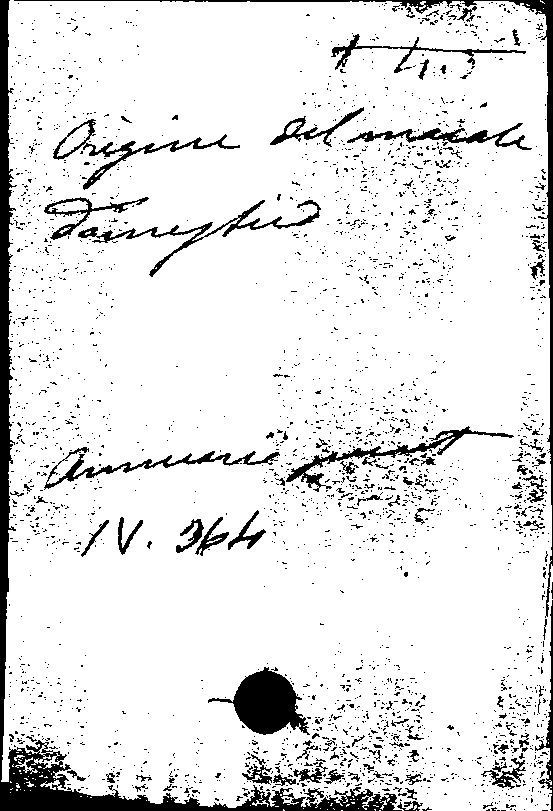 Origine del maiale
domestico
Annuario
IV. 364